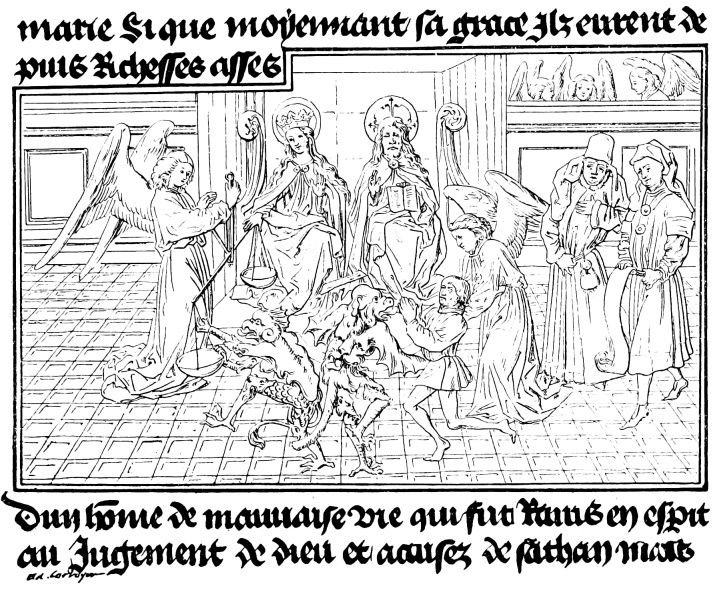 marie Si que moyennant sa grace Ilz eurent de
puis Richesses asses
Dun hōme de mauuaise vie qui fut Rauis en espit
au Jugement de dieu et accusez de sathan mais